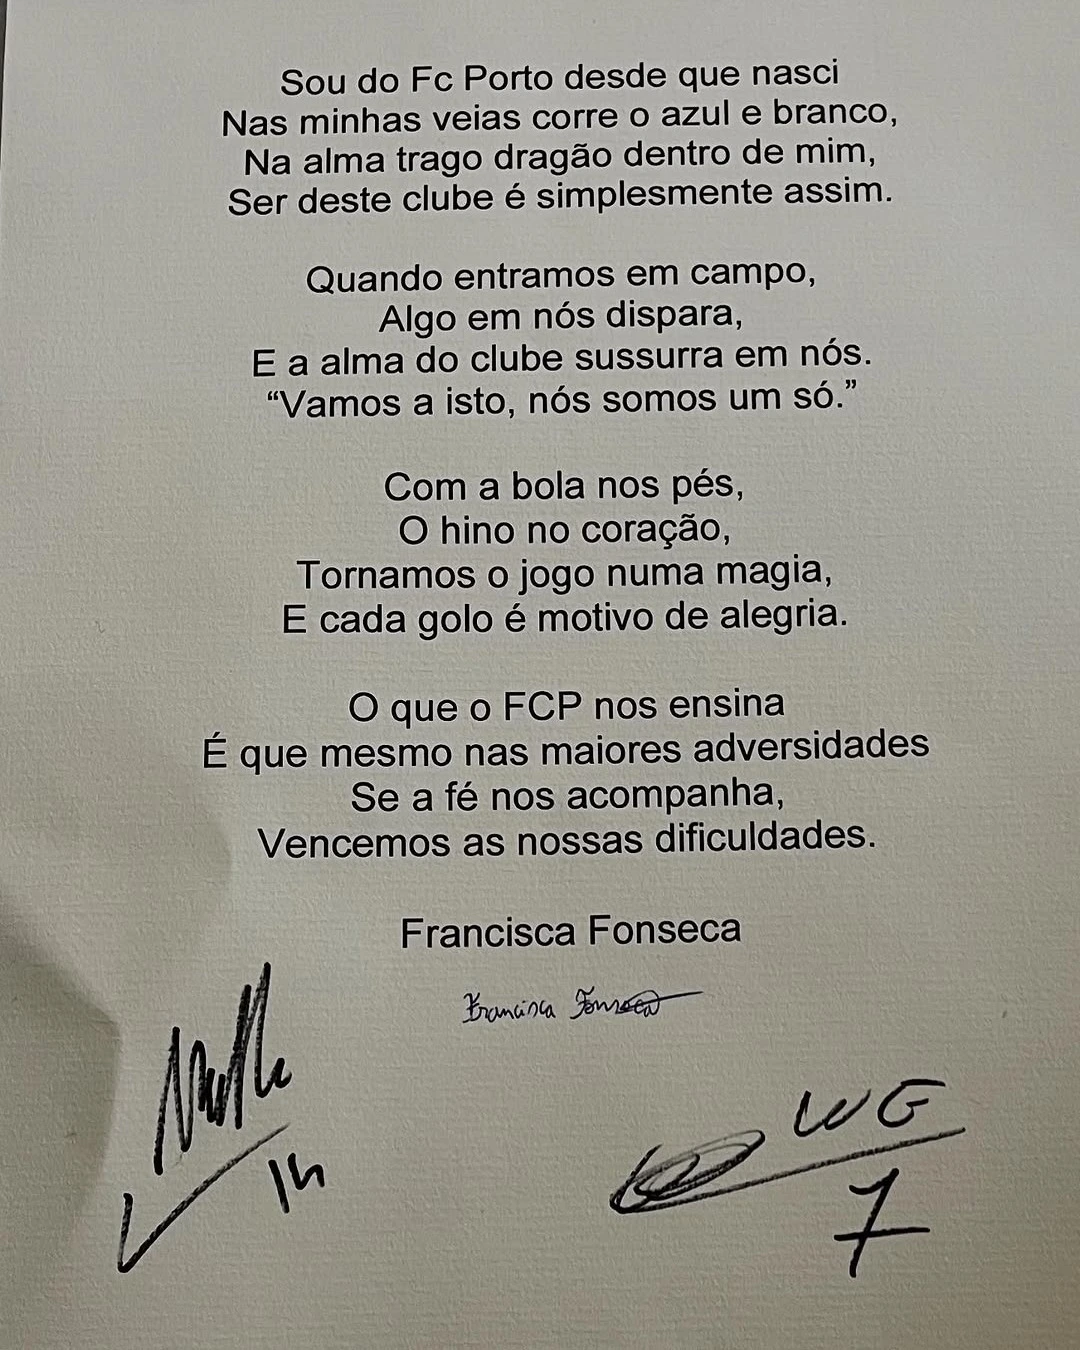 Sou do Fc Porto desde que nasci
Nas minhas veias corre o azul e branco,
Na alma trago dragão dentro de mim,
Ser deste clube é simplesmente assim.
Quando entramos em campo,
Algo em nós dispara,
E a alma do clube sussurra em nós.
“Vamos a isto, nós somos um só.”
Com a bola nos pés,
O hino no coração,
Tornamos o jogo numa magia,
E cada golo é motivo de alegria.
O que o FCP nos ensina
É que mesmo nas maiores adversidades
Se a fé nos acompanha,
Vencemos as nossas dificuldades.
Francisca Fonseca
Francisca Fonseca
WG
14
7